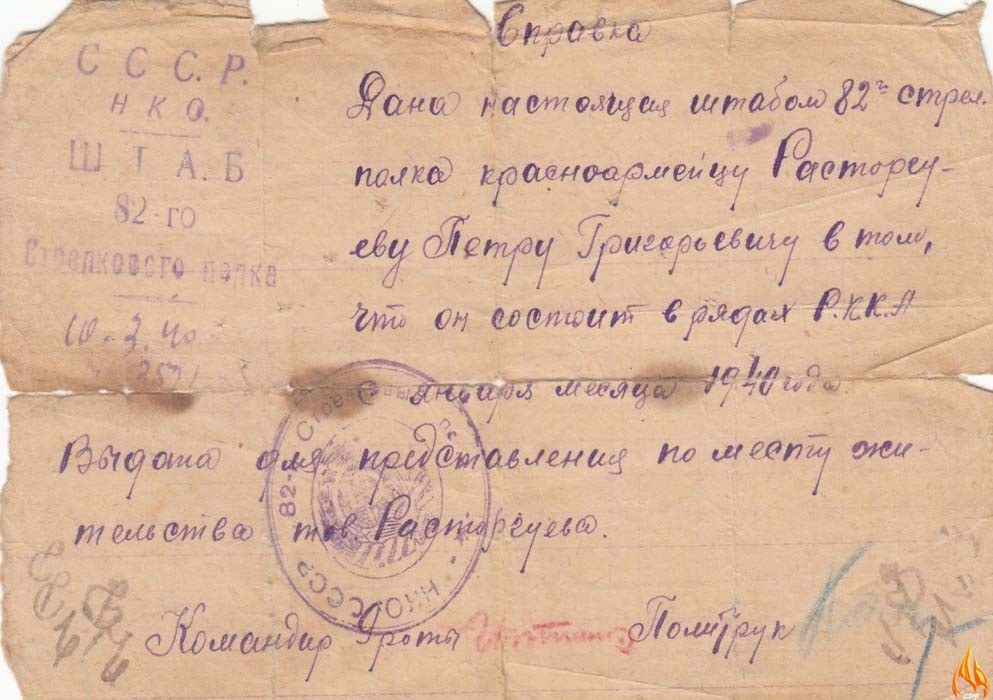 С С С. Р.
Н К О.
Ш Т А. Б
82-го
Стрелкового полка
10.3.40
Справка
Дана настоящая штабом 82го стрел.
полка красноармейцу Расторгу-
еву Петру Григорьевичу в том,
что он состоит в рядах Р.К.К.А
с января месяца 1940 года
Выдана для представления по месту жи-
тельства тов. Расторгуева.
Командир роты
Политрук
82-й Стрелковый
НКО СССР